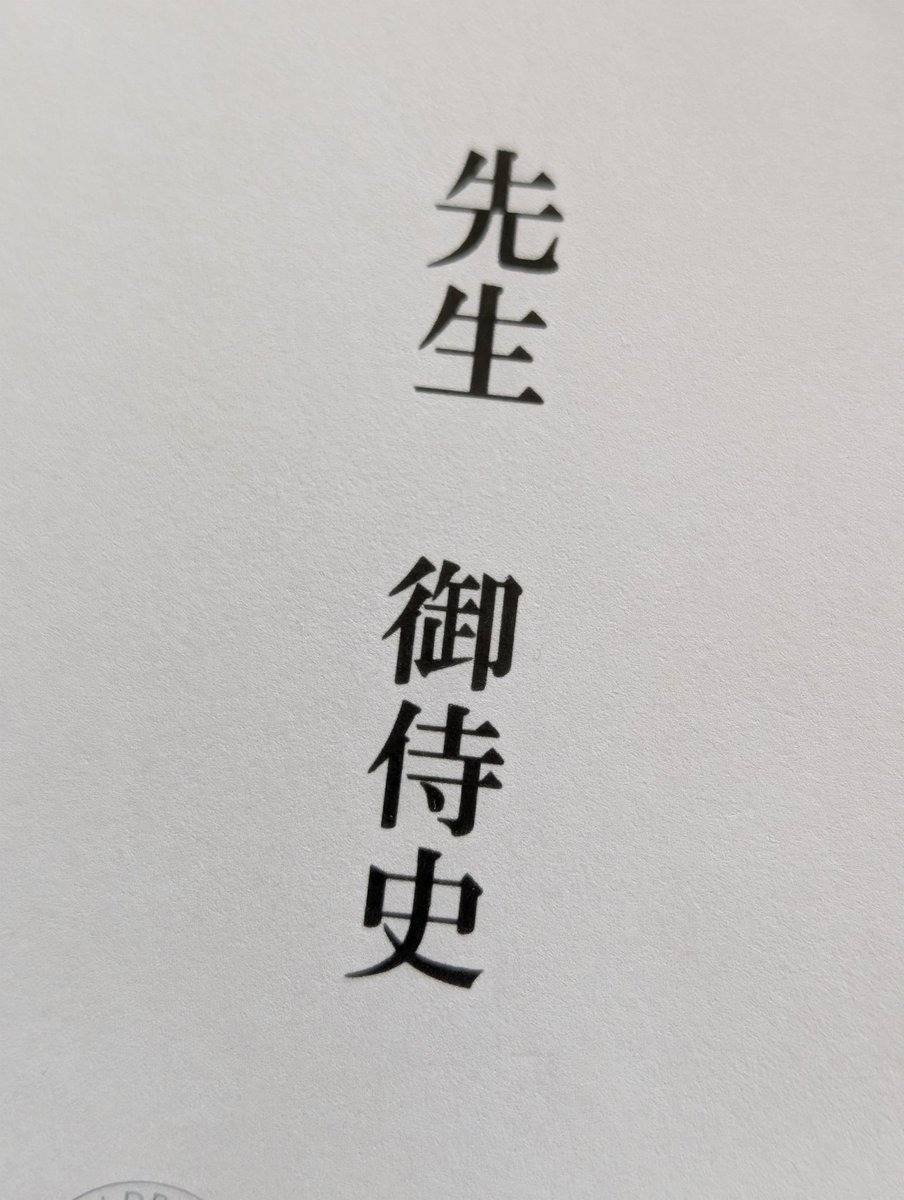 先生　御侍史